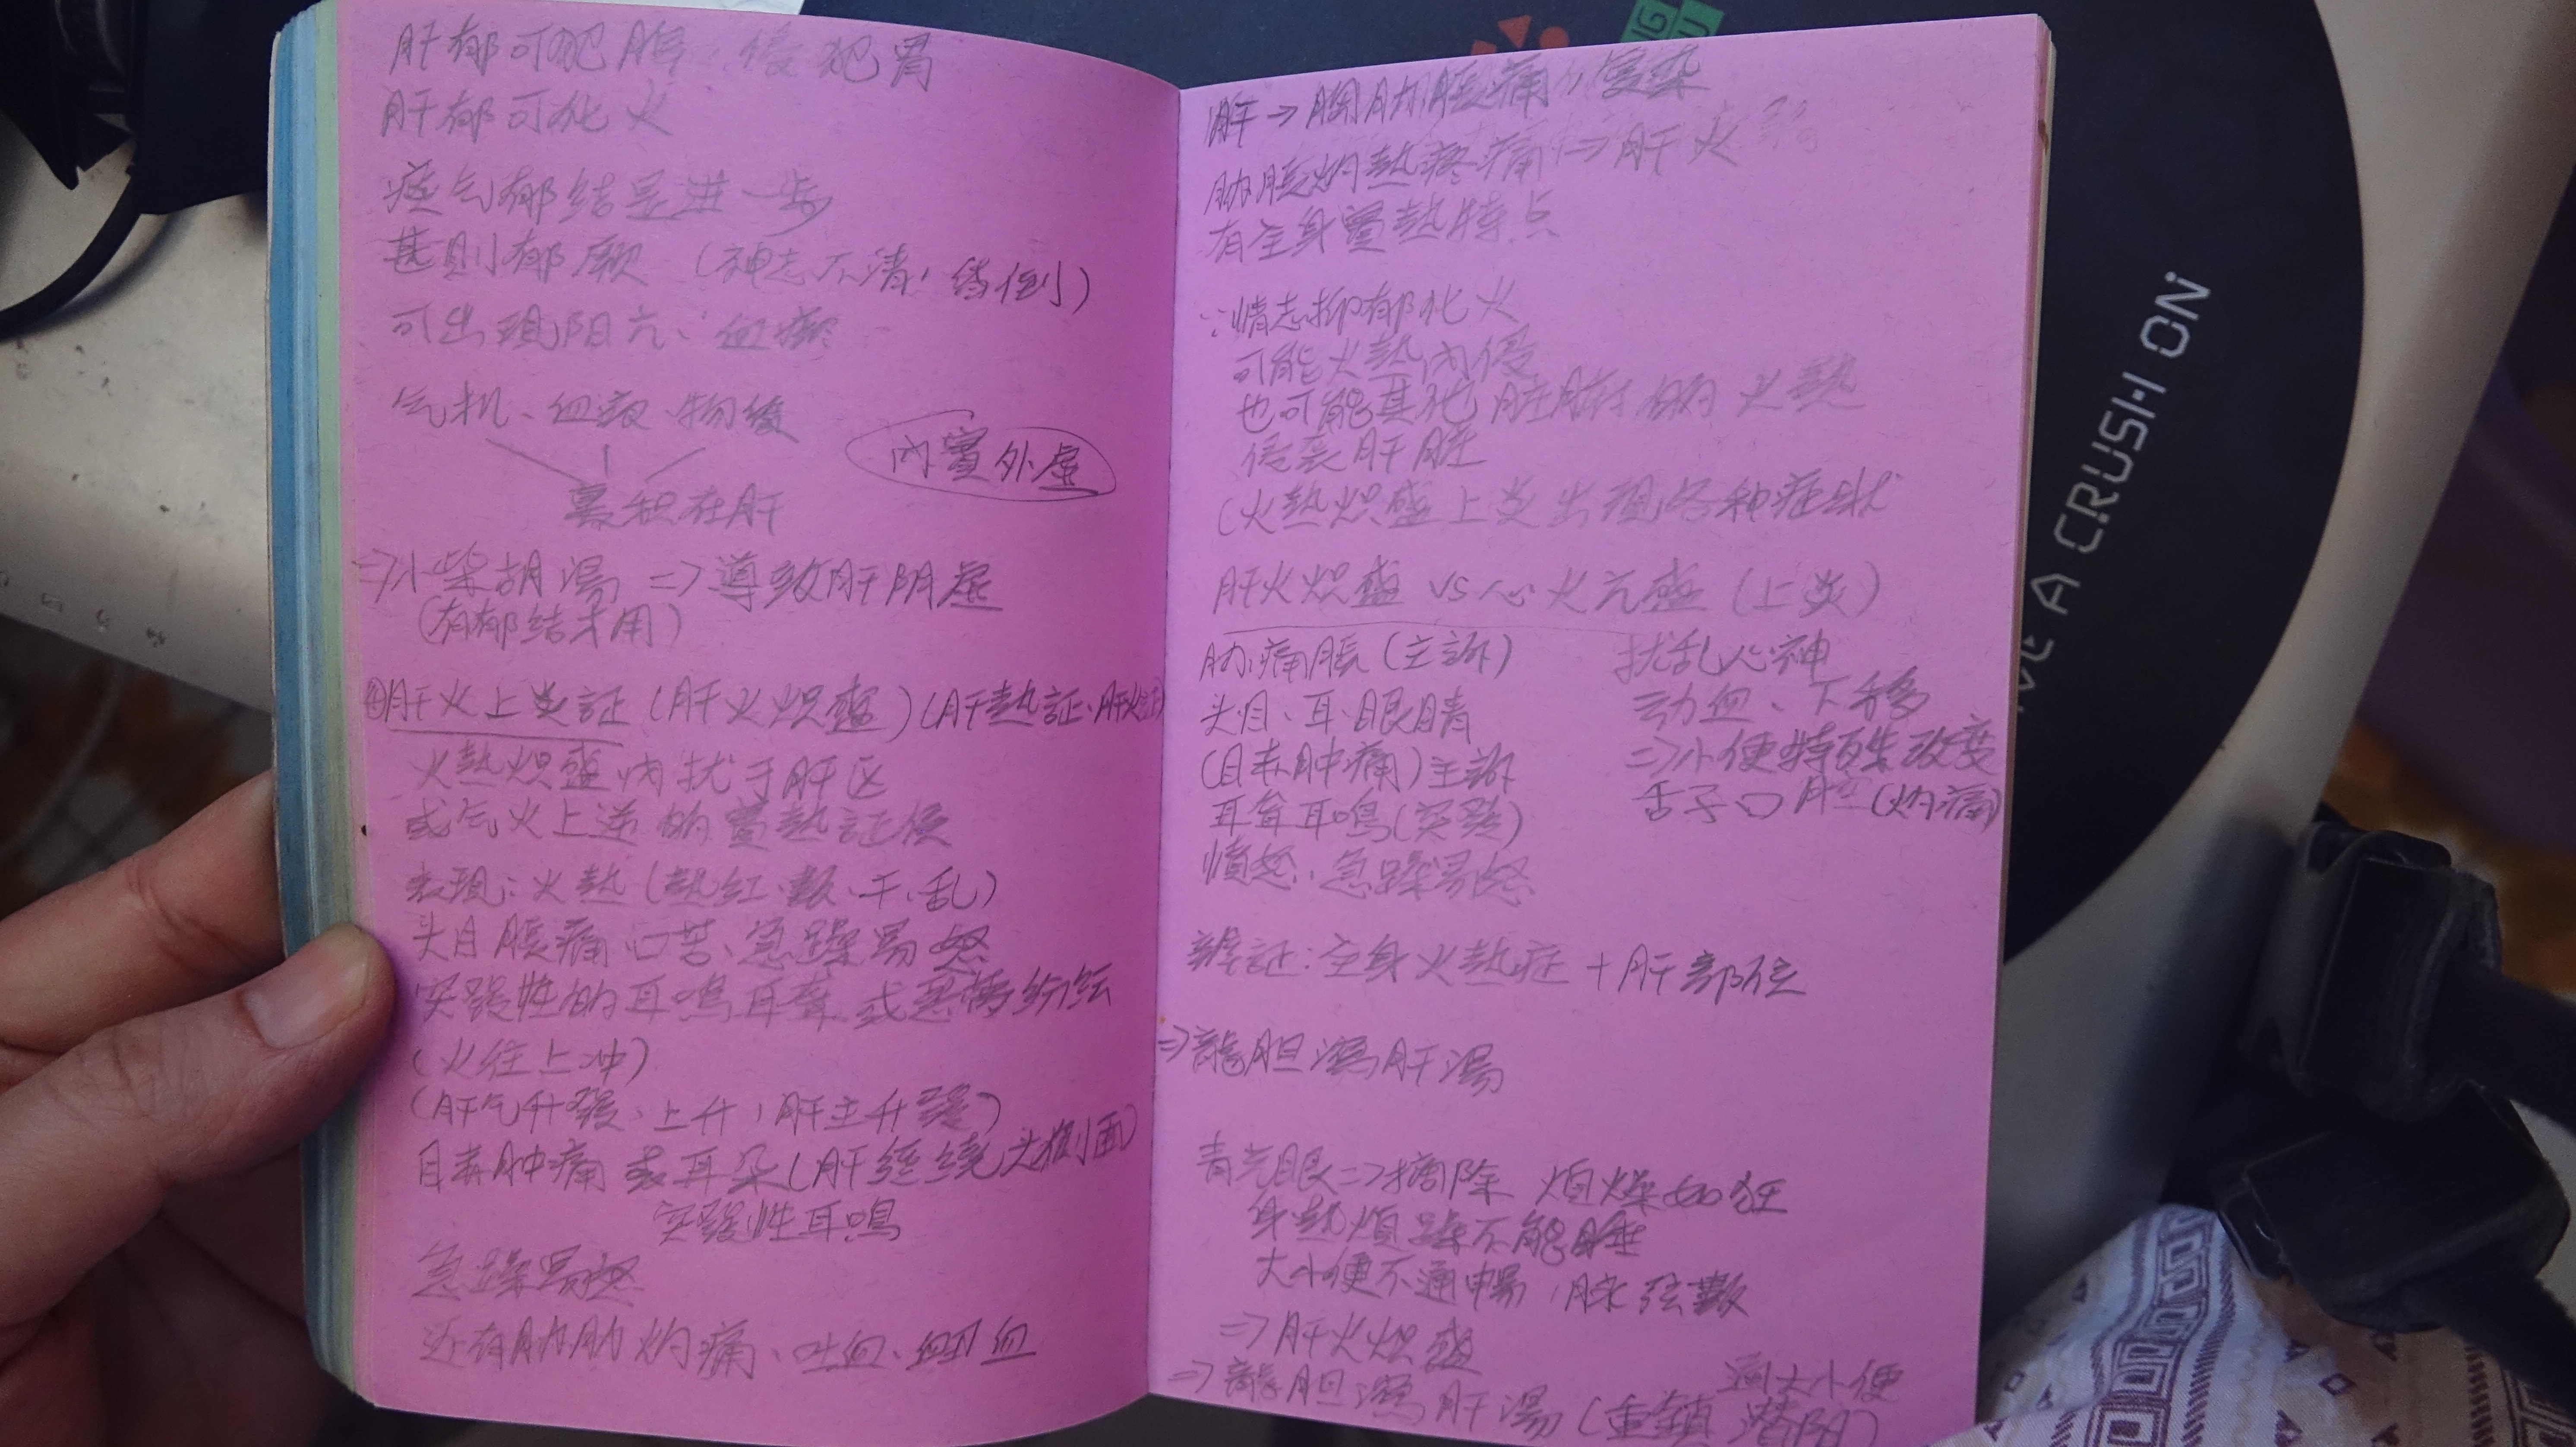 肝郁可犯脾、侵犯胃
肝郁可化火
痰气郁结是进一步
甚则郁厥（神志不清，倒）
可出现阳亢、血瘀
气机、血液、物
累积在肝
內實外虛
=>小柴胡湯 => 導致肝阴虛
(有郁结才用)
④肝火上炎証（肝火炽盛）(肝熱証、肝火証)
火熱炽盛内扰于肝区
或气火上逆的實熱証候
表现：火熱（熱红、數、干、乱）
头目脹痛 口苦、急躁易怒
突發性的耳鳴耳聋 或
(火往上冲)
(肝气升發、上升，肝主升發)
目赤肿痛 表耳朵(肝经绕头侧面)
突發性耳鳴
急躁易怒
还有胁肋灼痛、吐血、衄血
肝 => 胸肋脹痛
胁脹灼熱疼痛 => 肝火
有全身實熱特点
∵情志抑郁化火
可能火熱内侵
也可能其他脏腑的火熱
侵袭肝脏
(火熱炽盛上炎出現各种症状
肝火炽盛 vs 心火亢盛（上炎）
胁痛脹（主訴）
头目、耳、眼睛
(目赤肿痛)主訴
耳聋耳鳴(突發)
憤怒、急躁易怒
扰乱心神
动血、下移
=>小便特殊改变
舌子口腔(灼痛)
辨証：全身火熱症 + 肝部位
=>龍胆瀉肝湯
青光眼 => 摘除 煩燥如狂
身熱煩躁不能睡
大小便不通暢，脉弦數
=> 肝火炽盛
=> 龍胆瀉肝湯（重鎮潜阴）
通大小便
A CRUSH ON